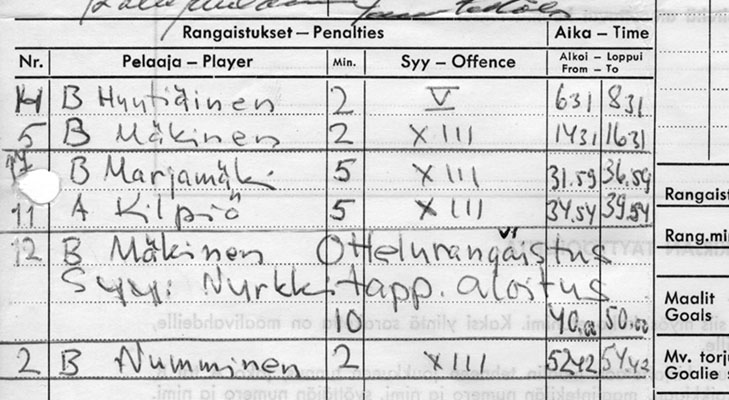 Rangaistukset – Penalties Aika – Time
Nr. Pelaaja – Player Min. Syy – Offence Alkoi – Loppui
From – To
14 B Hyytiäinen 2 V 631 831
5 B Mäkinen 2 XIII 1431 1631
B Marjamäki 5 XIII 31.59 36.59
11 A Kilpiö 5 XIII 34.54 39.54
12 B Mäkinen Ottelurangaistus
Syy: Nyrkkitapp. aloitus
10 40.00 50.00
2 B Numminen 2 XIII 5242 5442
Rangaist
Rang.min
Maalit
Goals
Mv. torju
Goalie s